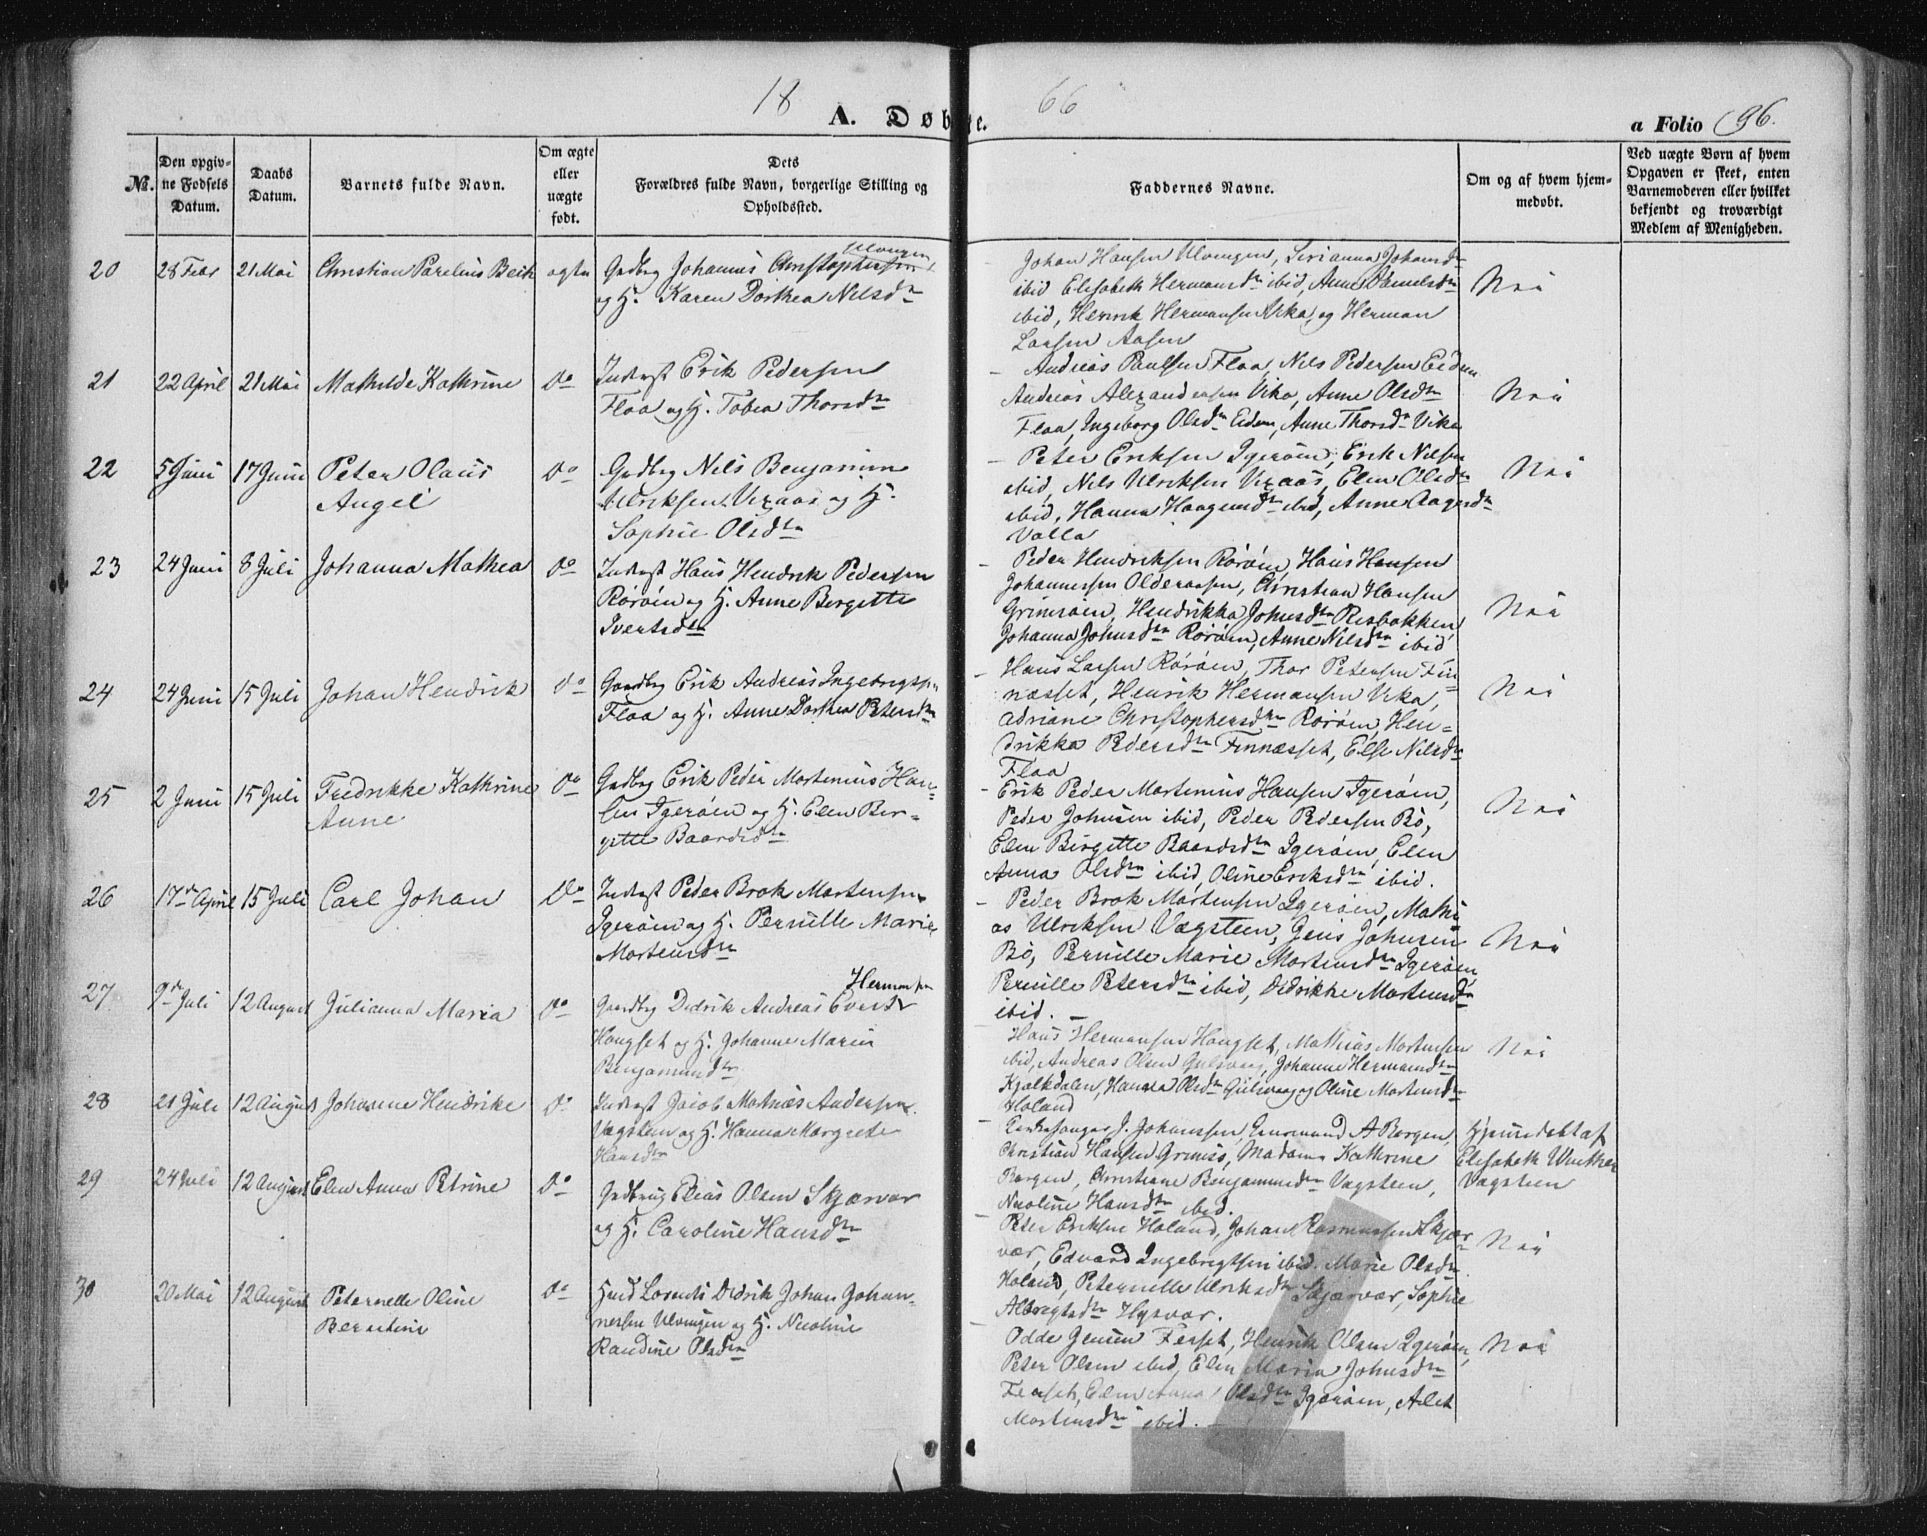 18 66
A. Døbte.
a Folio 96.
No.
Den opgivne Fødsels Datum.
Daabs Datum.
Barnets fulde Navn.
Om ægte eller uægte født.
Dets Forældres fulde Navn, borgerlige Stilling og Opholdssted.
Faddernes Navne.
Om og af hvem hjemmedøbt.
Ved uægte Børn af hvem Opgaven er skeet, enten Barnemoderen eller hvilket bekjendt og troværdigt Medlem af Menigheden.
20 28 Febr 21 Mai Christian Parelius Beck ægte
Gaardbrg Johannes Christophersen Ulvingen
og H. Karen Dorthea Nilsdtr
Johan Hansen Ulvingen, Johansdtr
ibid Elisabeth Hermansdtr ibid, Anne Danielsdtr
ibid, Henrik Hermansen Vika, og Herman
Larsen Aasen
Nei
21 22 April 21 Mai Mathilde Kathrine do
Inderst Erik Pedersen
Flaa og H. Tobea Thorsdtr
Andreas Paulsen Flaa, Nils Pedersen Eidem
Andreas Alexandersen Vika, Anne Olsdtr
Flaa, Ingeborg Olsdtr Eidem, Anne Thorsdtr Vika
Nei
22 5 Juni 17 Juni Peter Olaus
Angel do
Gaardbrg Nils Benjamin
Ulriksen Vexaas og H.
Sophie Olsdtr
Peter Eriksen Igerøen, Erik Nilsen
ibid, Nils Ulriksen Vexaas, Elen Olsdtr
ibid, Hanna Haagensdtr ibid, Anne Aagesdtr
Valla
Nei
23 24 Juni 8 Juli Johanna Mathea do
Inderst Hans Hendrik Pedersen
Rørøen og H. Anne Bergitte
Ivertsdtr
Peder Hendriksen Rørøen, Hans Hansen
Johannessen Olderaasen, Christian Hansen
Grimsøen, Hendrikka Johnsdtr Risbakken
Johanna Johnsdtr Rørøen, Anne Nilsdtr ibid
Nei
24 24 Juni 15 Juli Johan Hendrik do
Gaardbrg Erik Andreas Ingebrigtsen
Flaa og H. Anne Dorthea Petersdtr
Hans Larsen Rørøen, Thor Petersen Fin-
næsset, Henrik Hermansen Vika,
Adriane Christophersdtr Rørøen, Hen-
drikka Pedersdtr Finnæsset, Else Nilsdtr
Flaa
Nei
25 2 Juni 15 Juli Fredrikke Kathrine
Anne do
Gaardbrg Erik Peder Mortenius Han-
sen Igerøen og H. Elen Ber-
gitte Baardsdtr
Erik Peder Mortenius Hansen Igerøen,
Peder Johnsen ibid, Peder Pedersen Bø,
Elen Birgitte Baardsdtr Igerøen, Elen
Anna Olsdtr ibid, Oline Eriksdtr ibid.
Nei
26 17de April 15 Juli Carl Johan do
Inderst Peder Brok Mortensen
Igerøen og H. Pernille Marie
Mortensdtr
Peder Brok Mortensen Igerøen, Mathi-
as Ulriksen Vægsteen, Jens Johnsen
Bø, Pernille Marie Mortensdtr Igerøen
Pernille Petersdtr ibid, Didrikke Mortensdtr
ibid.
Nei
27 9de Juli 12 August Julianna Maria do
Hermansen
Gaardbrg Didrik Andreas Evert
Hougset og H. Johanne Marie
Benjamindtr
Hans Hermansen Hougset, Mathias Mortensen
ibid, Andreas Olsen Gulsvaag, Johanne Hermansdtr
Kjølkdalen, Hanna Olsdtr Gulsvaag og Oline Mortensdtr
Holand
Nei
28 21 Juli 12 August Johanne Hendrike do
Inderst Jacob Mathias Andersen
Vægsteen og H. Hanna Margrete
Hansdtr
Kirkesanger J. Johanssen, A Borgen,
Christian Hansen Grimsø, Madam Kathrine
Borgen, Christiane Benjaminsdtr Vægsteen,
Nicoline Hansdtr ibid.
Hjemmedøbt af
Elisabeth Winther
Vægsteen
29 24 Juli 12 August Elen Anna Petrine do
Gaardbrug Elias Olsen Skjærvær
og H. Caroline Hansdtr
Peter Eriksen Holand, Johan Rasmussen Skjær-
vær, Edvard Ingebrigtsen ibid. Marie Olsdtr
Holand, Peternelle Ulriksdtr Skjærvær, Sophie
Albregtsdtr Hysvær.
Nei
30 20 Mai 12 August Peternelle Oline
Beraline do
Husd Lorents Didrik Johan Johan-
nessen Ulvingen og H. Nicoline
Randine Olsdtr
Odde Jensen Ferset, Henrik Olsen Igerøen,
Peter Olsen ibid, Elen Maria Johnsdtr
Ferset, Elen Anna Olsdtr Igerøen, Alet
Mortensdtr ibid.
Nei